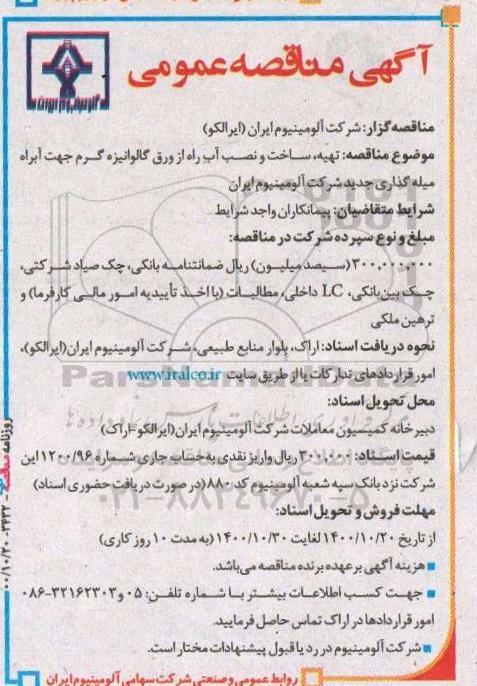 آگهی مناقصه عمومی
آلومینیوم ایران
مناقصه‌گزار: شرکت آلومینیوم ایران (ایرالکو)
موضوع مناقصه: تهیه، ساخت و نصب آب راه از ورق گالوانیزه گرم جهت آبراه
میله گذاری جدید شرکت آلومینیوم ایران
شرایط متقاضیان: پیمانکاران واجد شرایط
مبلغ و نوع سپرده شرکت در مناقصه:
۳۰۰,۰۰۰,۰۰۰ (سیصد میلیون) ریال ضمانتنامه بانکی، چک صیاد شرکتی،
چک بین بانکی، LC داخلی، مطالبات (با اخذ تأییدیه امور مالی کارفرما) و
ترهین ملکی
نحوه دریافت اسناد: اراک، بلوار منابع طبیعی، شرکت آلومینیوم ایران (ایرالکو)،
امور قراردادهای تدارکات یا از طریق سایت www.iralco.ir
محل تحویل اسناد:
دبیرخانه کمیسیون معاملات شرکت آلومینیوم ایران (ایرالکو-اراک)
قیمت اسناد: ۳۰۰,۰۰۰ ریال واریز نقدی به حساب جاری شماره ۱۲۰۰/۹۶ این
شرکت نزد بانک سپه شعبه آلومینیوم کد ۸۸۰ (در صورت دریافت حضوری اسناد)
مهلت فروش و تحویل اسناد:
از تاریخ ۱۴۰۰/۱۰/۲۰ لغایت ۱۴۰۰/۱۰/۳۰ (به مدت ۱۰ روز کاری)
■ هزینه آگهی بر عهده برنده مناقصه می‌باشد.
■ جهت کسب اطلاعات بیشتر با شماره تلفن: ۰۵ و ۳۲۱۶۲۳۰۳-۰۸۶
امور قراردادها در اراک تماس حاصل فرمایید.
■ شرکت آلومینیوم در رد یا قبول پیشنهادات مختار است.
روابط عمومی و صنعتی شرکت سهامی آلومینیوم ایران
روزنامه مناقصه ۳۶۳۲ - ۰۰/۱۰/۲۰
ParsNamadData
۰۲۱-۸۸۳۴۹۶۷۰-۵